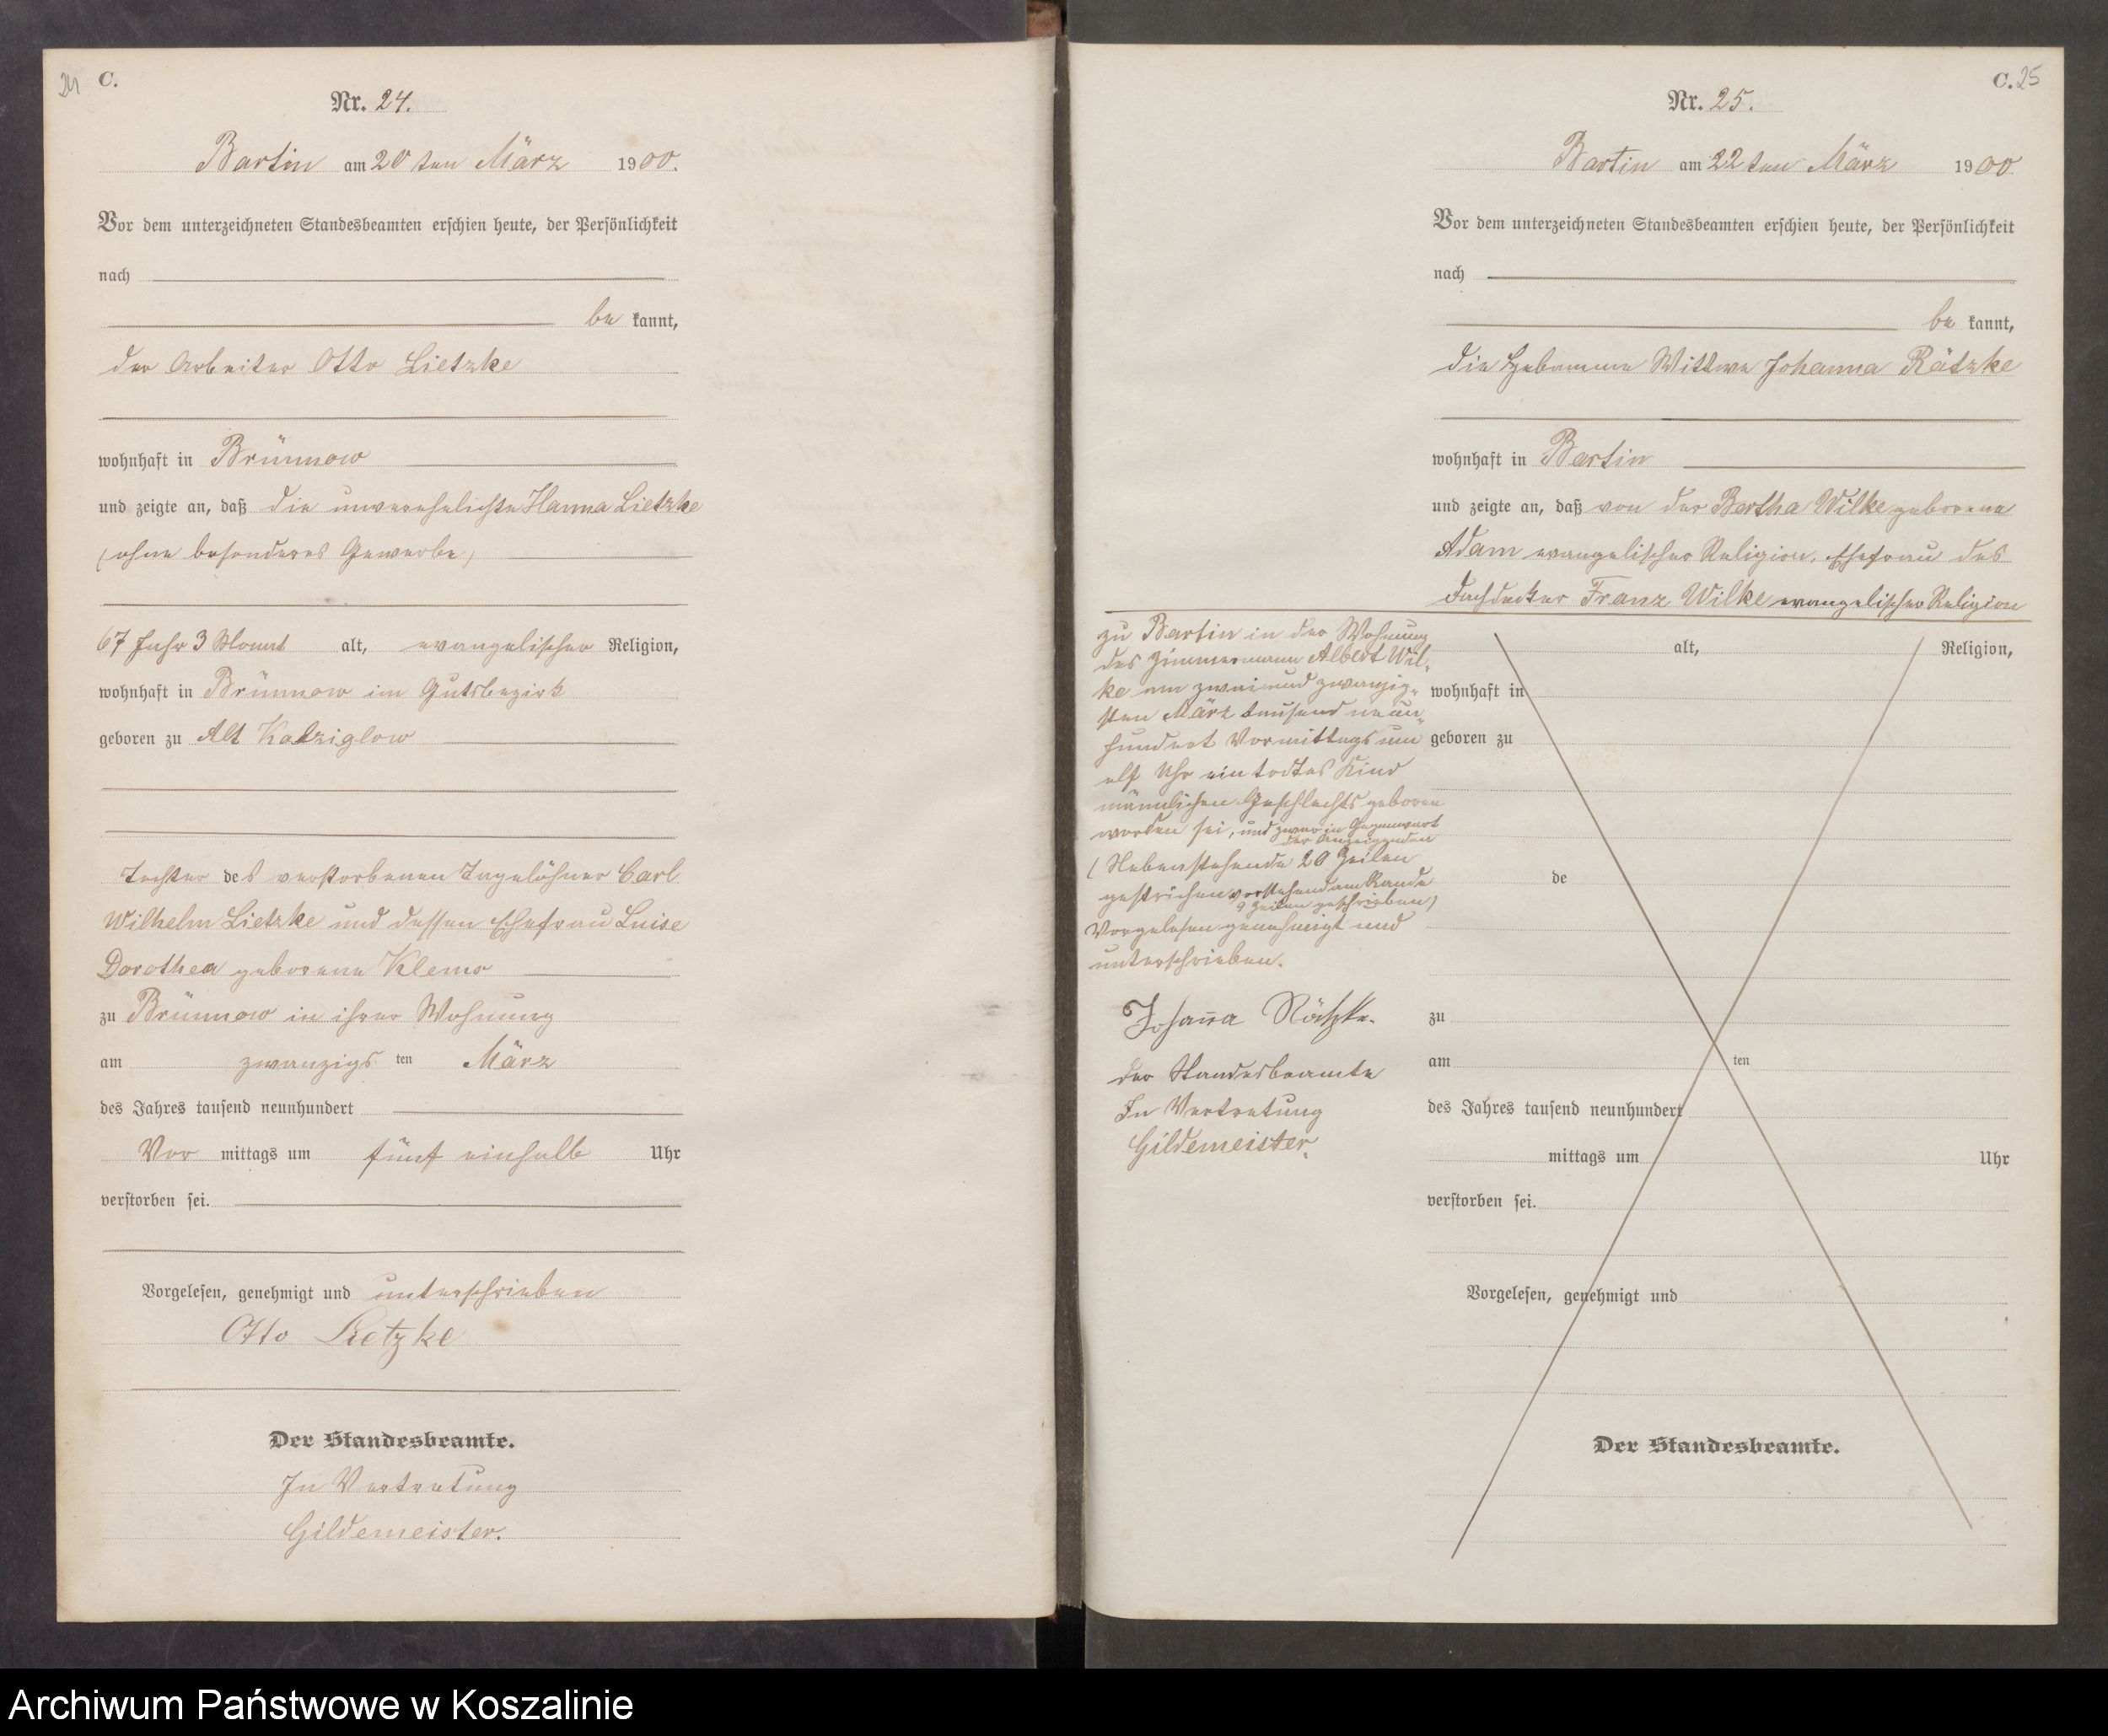 24
C.
Nr. 24.
Bartin am 20 ten März 1900.
Vor dem unterzeichneten Standesbeamten erschien heute, der Persönlichkeit
nach
be kannt,
der Arbeiter Otto Lietzke
wohnhaft in Brünnow
und zeigte an, daß die unverehelichte Hanna Lietzke
(ohne besonderes Gewerbe)
67 Jahr 3 Monat alt, evangelischer Religion,
wohnhaft in Brünnow im Gutsbezirk
geboren zu Alt Kolziglow
Tochter des verstorbenen Tagelöhner Carl
Wilhelm Lietzke und dessen Ehefrau Luise
Dorothea geborene Klems
zu Brünnow in ihrer Wohnung
am zwanzigs ten März
des Jahres tausend neunhundert
Vor mittags um fünf einhalb Uhr
verstorben sei.
Vorgelesen, genehmigt und unterschrieben
Otto Lietzke
Der Standesbeamte.
In Vertretung
Gildemeister.
C. 25
Nr. 25.
Bartin am 22 ten März 1900
Vor dem unterzeichneten Standesbeamten erschien heute, der Persönlichkeit
nach
be kannt,
die Hebamme Wittwe Johanna Rätzke
wohnhaft in Bartin
und zeigte an, daß von der Bertha Wilke geborene
Adam evangelischer Religion, Ehefrau des
Dachdecker Franz Wilke evangelischer Religion
zu Bartin in der Wohnung
des Zimmermann Albert Wil-
ke am zwei und zwanzig-
sten März tausend neun-
hundert Vormittags um
elf Uhr ein todtes Kind
männlichen Geschlechts geboren
worden sei, und zwar in Gegenwart
der Anzeigenden
(Nebenstehende 20 Zeilen
gestrichen vorstehend am Rande
9 Zeilen geschrieben)
Vorgelesen genehmigt und
unterschrieben.
Johanna Rätzke.
der Standesbeamte
In Vertretung
Gildemeister.
alt, Religion,
wohnhaft in
geboren zu
de
zu
am ten
des Jahres tausend neunhundert
mittags um Uhr
verstorben sei.
Vorgelesen, genehmigt und
Der Standesbeamte.
Archiwum Państwowe w Koszalinie